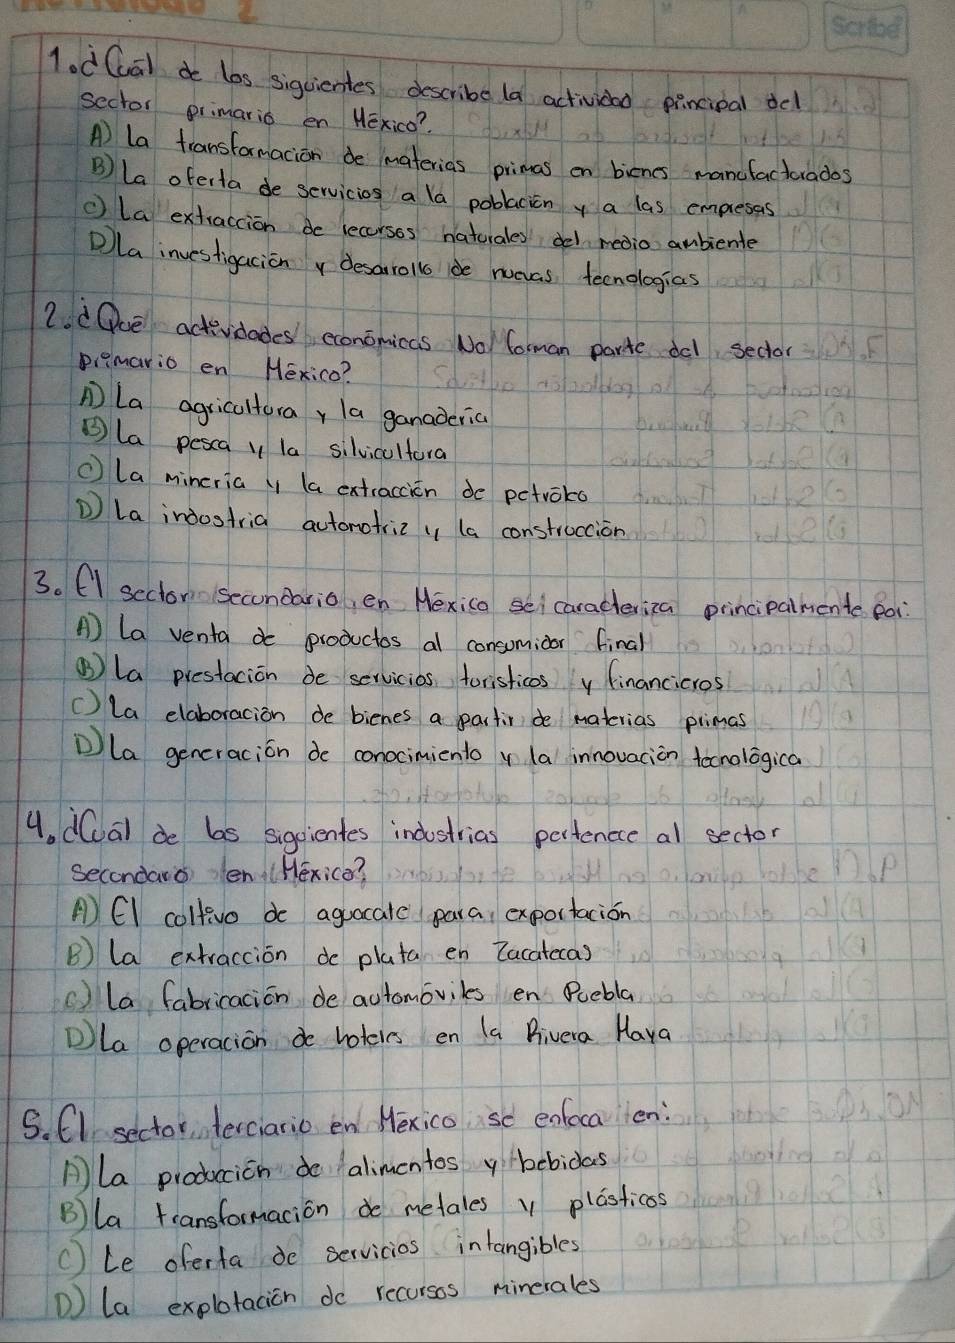 2
Scribe
1. ¿Cuál de los siguientes describe la actividad principal del
sector primario en México?
A) La transformación de materias primas en bienes manufacturados
B) La oferta de servicios a la población y a las empresas
C) La extracción de recursos naturales del medio ambiente
D) La investigación y desarrollo de nuevas tecnologías
2. ¿Qué actividades económicas No forman parte del sector
primario en México?
A) La agricultura y la ganadería
B) La pesca y la silvicultura
C) La minería y la extracción de petróleo
D) La industria automotriz y la construcción
3. El sector secundario en México se caracteriza principalmente por:
A) La venta de productos al consumidor final
B) La prestación de servicios turísticos y financieros
C) La elaboración de bienes a partir de materias primas
D) La generación de conocimiento y la innovación tecnológica
4. ¿Cuál de las siguientes industrias pertenece al sector
secundario en México?
A) El cultivo de aguacate para exportación
B) La extracción de plata en Zacatecas
C) La fabricación de automóviles en Puebla
D) La operación de hoteles en la Rivera Maya
5. El sector terciario en México se enfoca en:
A) La producción de alimentos y bebidas
B) La transformación de metales y plásticos
C) Le oferta de servicios intangibles
D) La explotación de recursos minerales